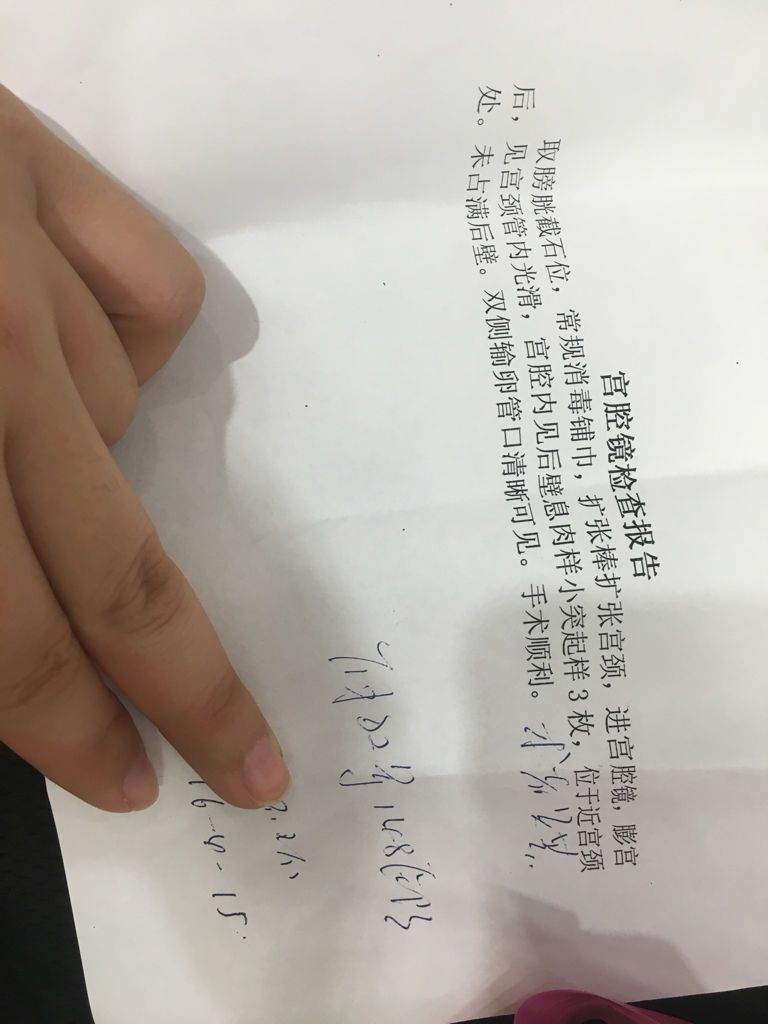 宫腔镜检查报告
取膀胱截石位，常规消毒铺巾，扩张棒扩张宫颈，进宫腔镜，膨宫
后，见宫颈管内光滑，宫腔内见后壁息肉样小突起样 3 枚，位于近宫颈
处。未占满后壁。双侧输卵管口清晰可见。手术顺利。
16-4-15